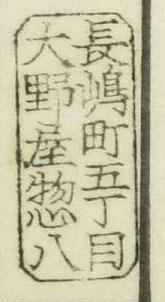 長嶋町五丁目
大野屋惣八